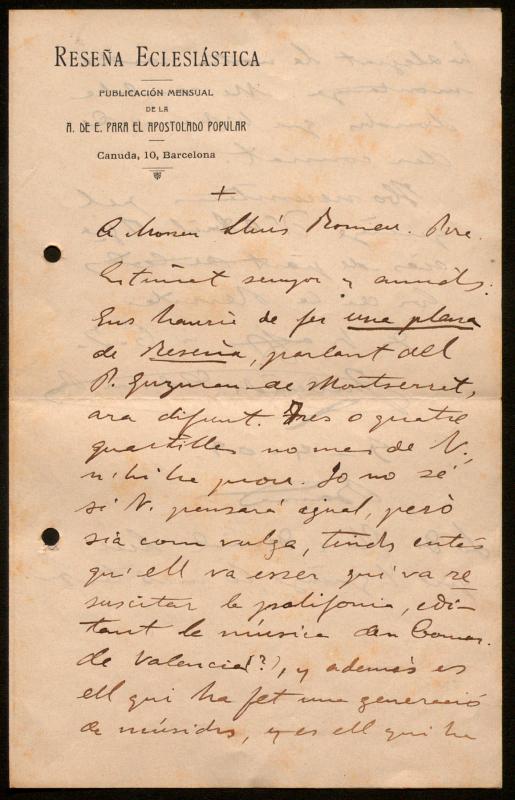 RESEÑA ECLESIÁSTICA
PUBLICACIÓN MENSUAL
DE LA
A. DE E. PARA EL APOSTOLADO POPULAR
Canuda, 10, Barcelona
+
A Mossen Lluís Romeu. Pvre.
Estimat senyor y amich:
Ens hauria de fer una plana
de Reseña, parlant del
P. Guzman de Montserrat,
ara difunt. Tres o quatre
quartilles nomes de V,
n'hi ha prou. Jo no sé
si V. pensará igual, peró
sia com vulga, tinch entés
qu'ell va esser qui va re
suscitar la polifonia, edi-
tant la música den Comas.
de Valencia(?), y además es
ell qui ha fet una generació
de músichs, y es ell qui ha